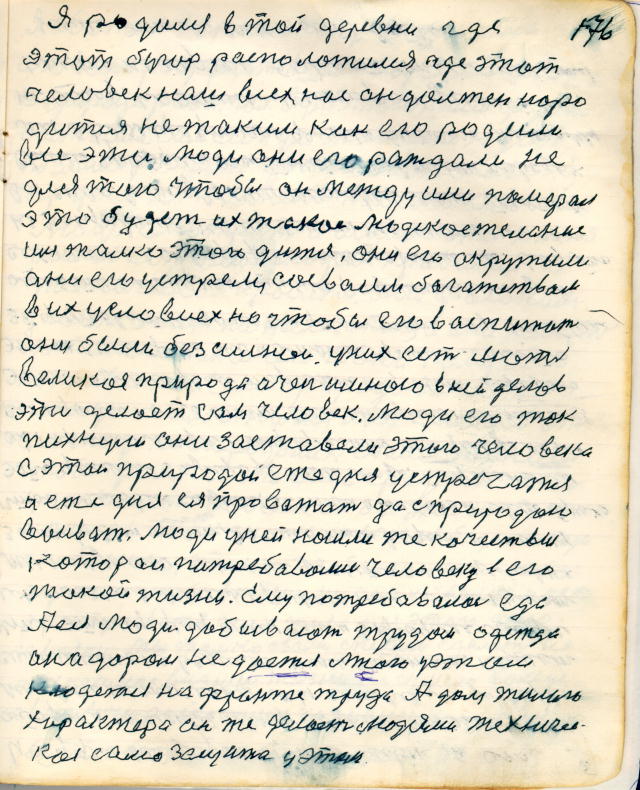 Я родился в той деревни где 176
этот бугор расположился где этот
человек наш всех нас он должен наро
дится не таким как его родили
все эти люди они его раждали не
для того чтобы он между ими помирал
это будет их такое людское желание
им жалко этого дитя, они его окружили
они его устрели со своим богатством
в их условиех но чтобы его воспитат
они были безсилнои. у них ест
великая природа а чеи много в ней делов
эти делает сам человек. Люди его так
пихнули они заставели этого человека
с этой природой еже дня устречатся
и еже дня ея провожат да с природою
воиват. Люди у ней нашли те качествы
которои патребавали человеку в его
такой жизни. Ему потребавалос еда
Аея Люди добивают трудом одежда
она даром не дается много у этом
кладется на фронте труда А дом жилого
характера он же делает людями техничес
кая само защита у этом.